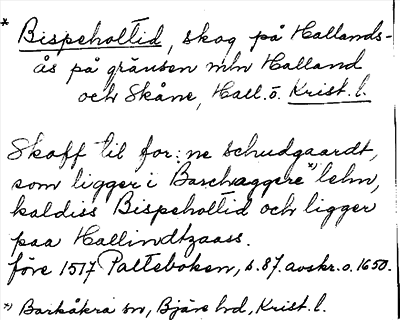 * Bispeholtid, skog på Hallands-
ås på gränsen mln Halland
och Skåne, Hall. o. Krist. l.
Skoff til for:ne schudgaardt,
som ligger i Barchaggere *) lehn,
kaldiss Bispeholtid och ligger
paa Hallindtzaass.
före 1517 Palteboken, s. 87. avskr. o. 1650.
*) Barkåkra sn, Bjäre hd, Krist. l.